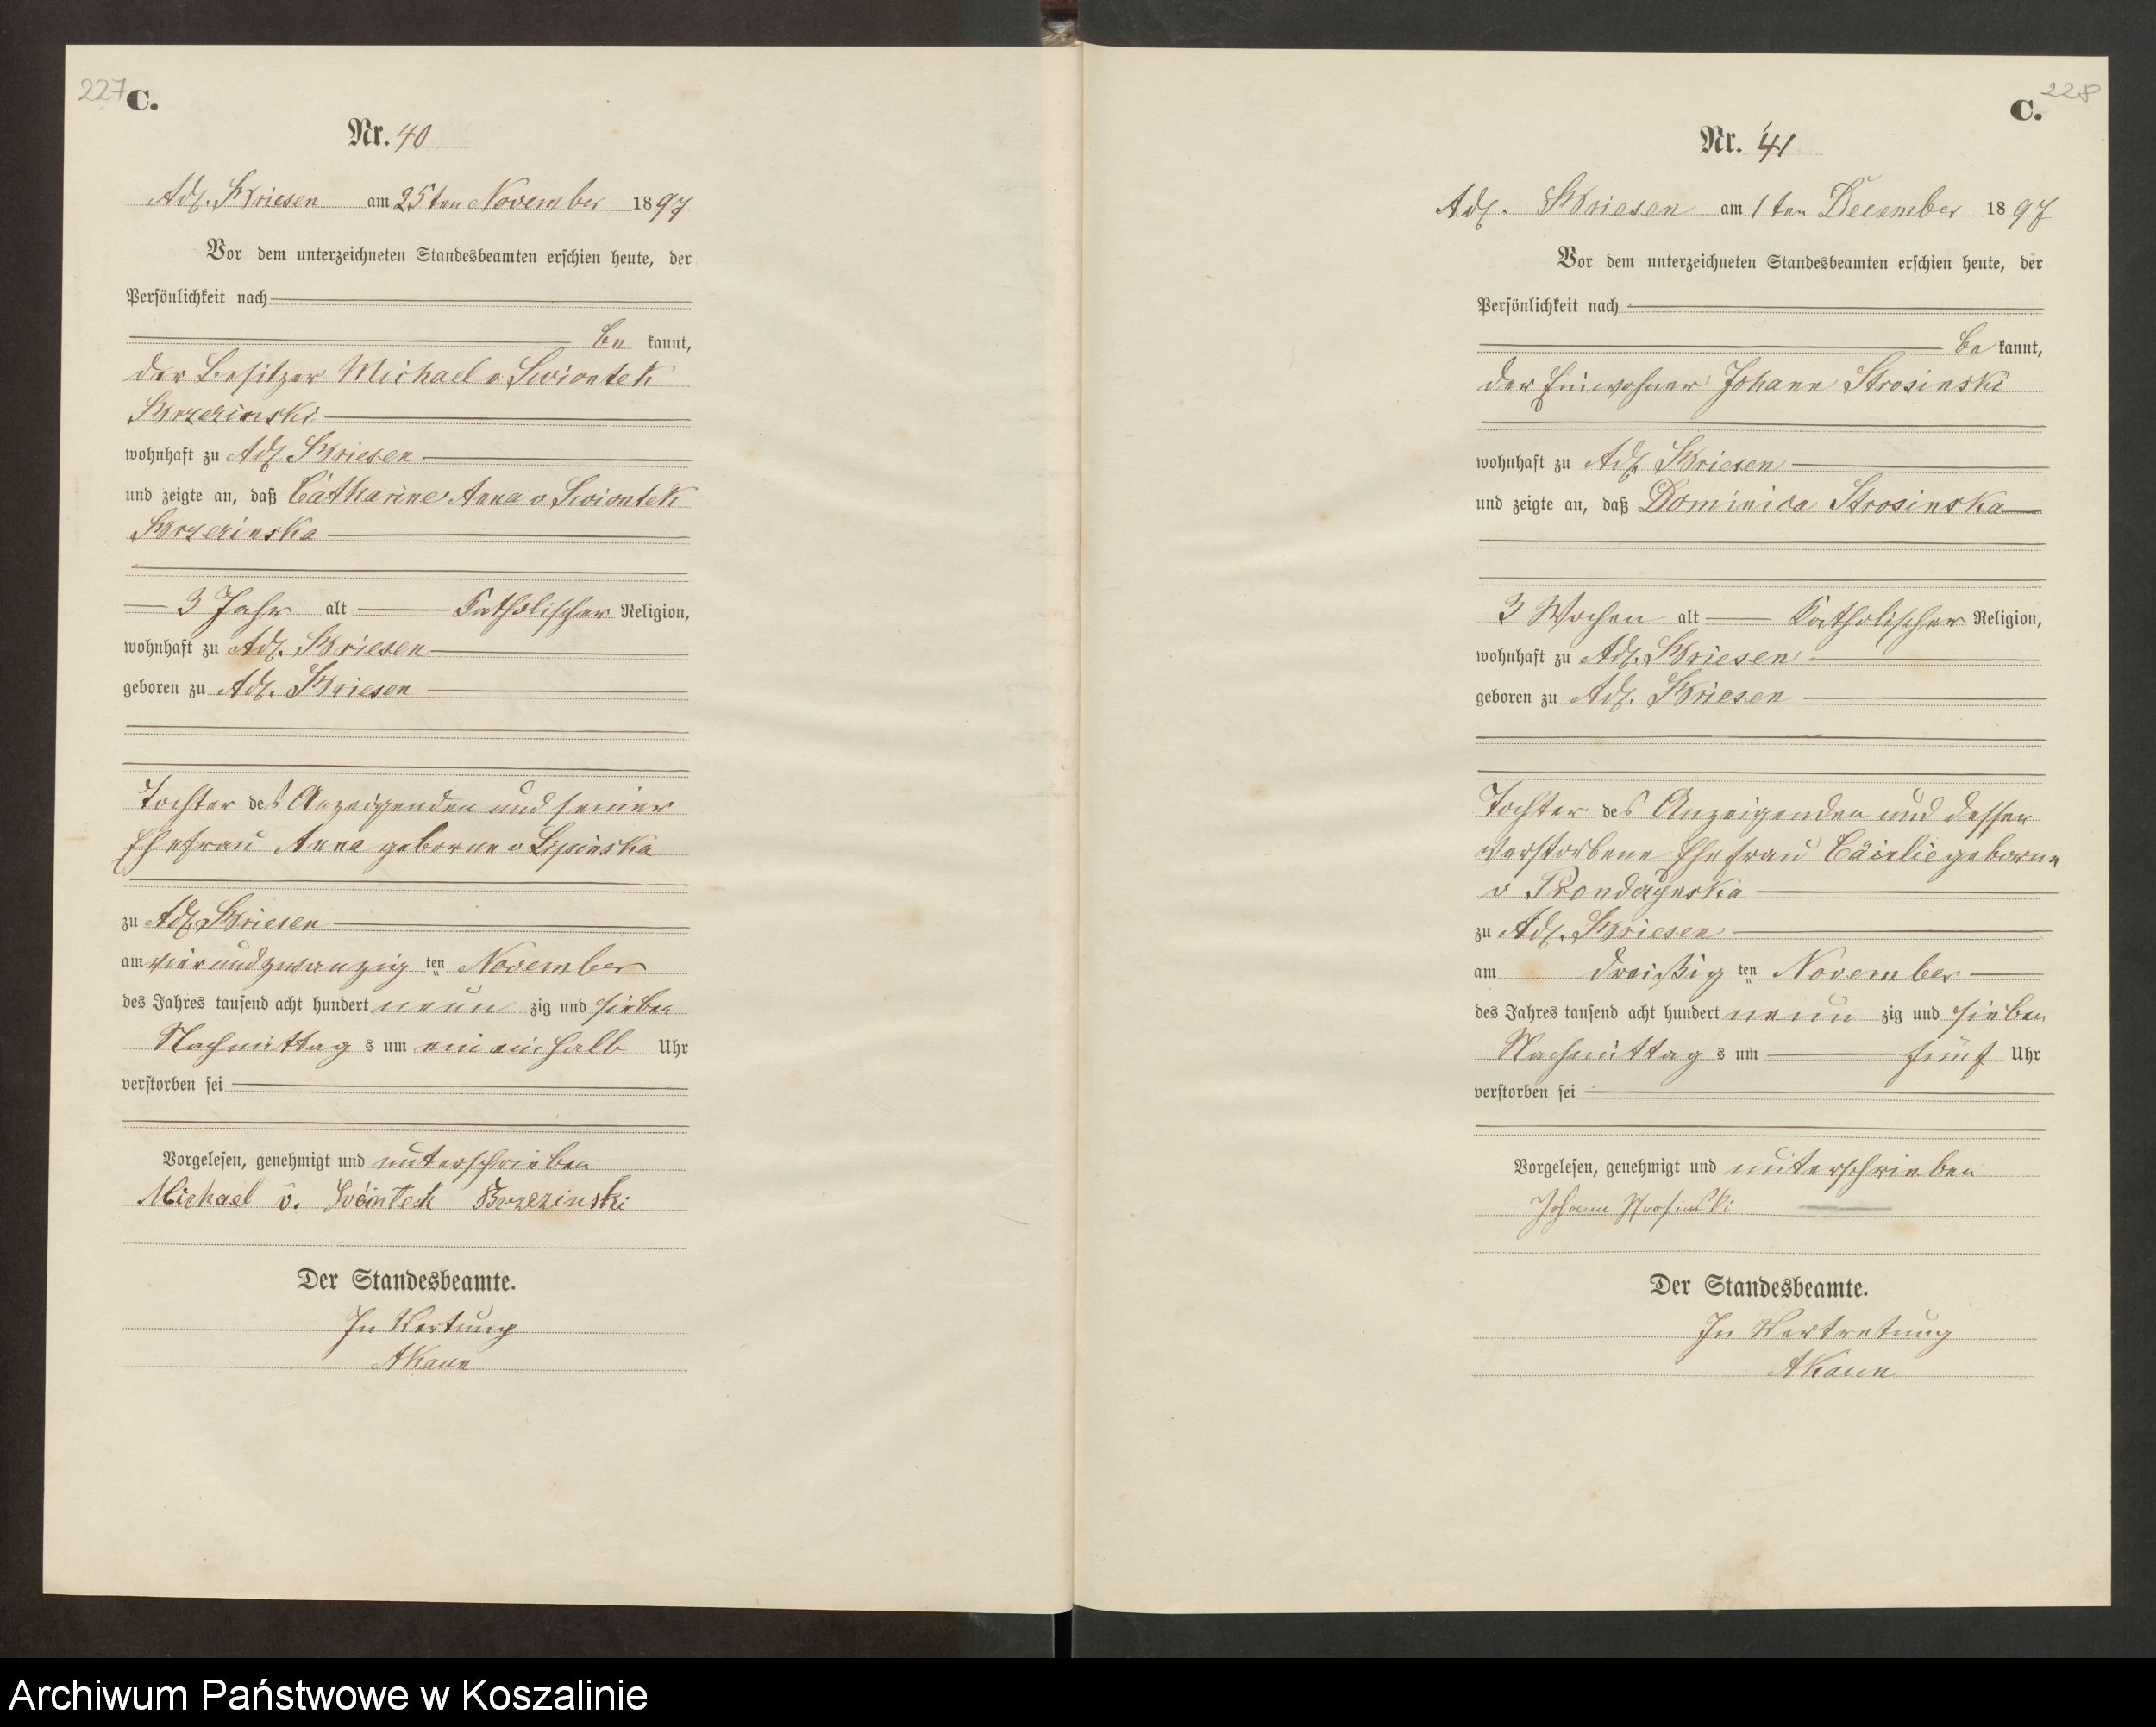 227
C.
Nr. 40
Adl. Briesen am 25ten November 1897
Vor dem unterzeichneten Standesbeamten erschien heute, der
Persönlichkeit nach
be kannt,
der Besitzer Michael v Swiontek
Brzezinski
wohnhaft zu Adl. Briesen
und zeigte an, daß Catharine Anna v Swiontek
Brzezinska
3 Jahr alt Katholischer Religion,
wohnhaft zu Adl. Briesen
geboren zu Adl. Briesen
Tochter des Anzeigenden und seiner
Ehefrau Anna geborne v Lipinska
zu Adl. Briesen
am vierundzwanzig ten November
des Jahres tausend acht hundert neun zig und sieben
Nachmittag s um ein ein halb Uhr
verstorben sei
Vorgelesen, genehmigt und unterschrieben
Michael v. Brzezinski
Der Standesbeamte.
In Vertung
AKaun
228
C.
Nr. 41
Adl. Briesen am 1ten December 1897
Vor dem unterzeichneten Standesbeamten erschien heute, der
Persönlichkeit nach
be kannt,
der Einwohner Johann Strosinski
wohnhaft zu Adl. Briesen
und zeigte an, daß Dominica Strosinska
3 Wochen alt Katholischer Religion,
wohnhaft zu Adl. Briesen
geboren zu Adl. Briesen
Tochter des Anzeigenden und dessen
verstorbene Ehefrau Cäcilie geborne
v
zu Adl. Briesen
am dreißig ten November
des Jahres tausend acht hundert neun zig und sieben
Nachmittag s um fünf Uhr
verstorben sei
Vorgelesen, genehmigt und unterschrieben
Johann Strosinski
Der Standesbeamte.
In Vertretung
AKaun
Archiwum Państwowe w Koszalinie